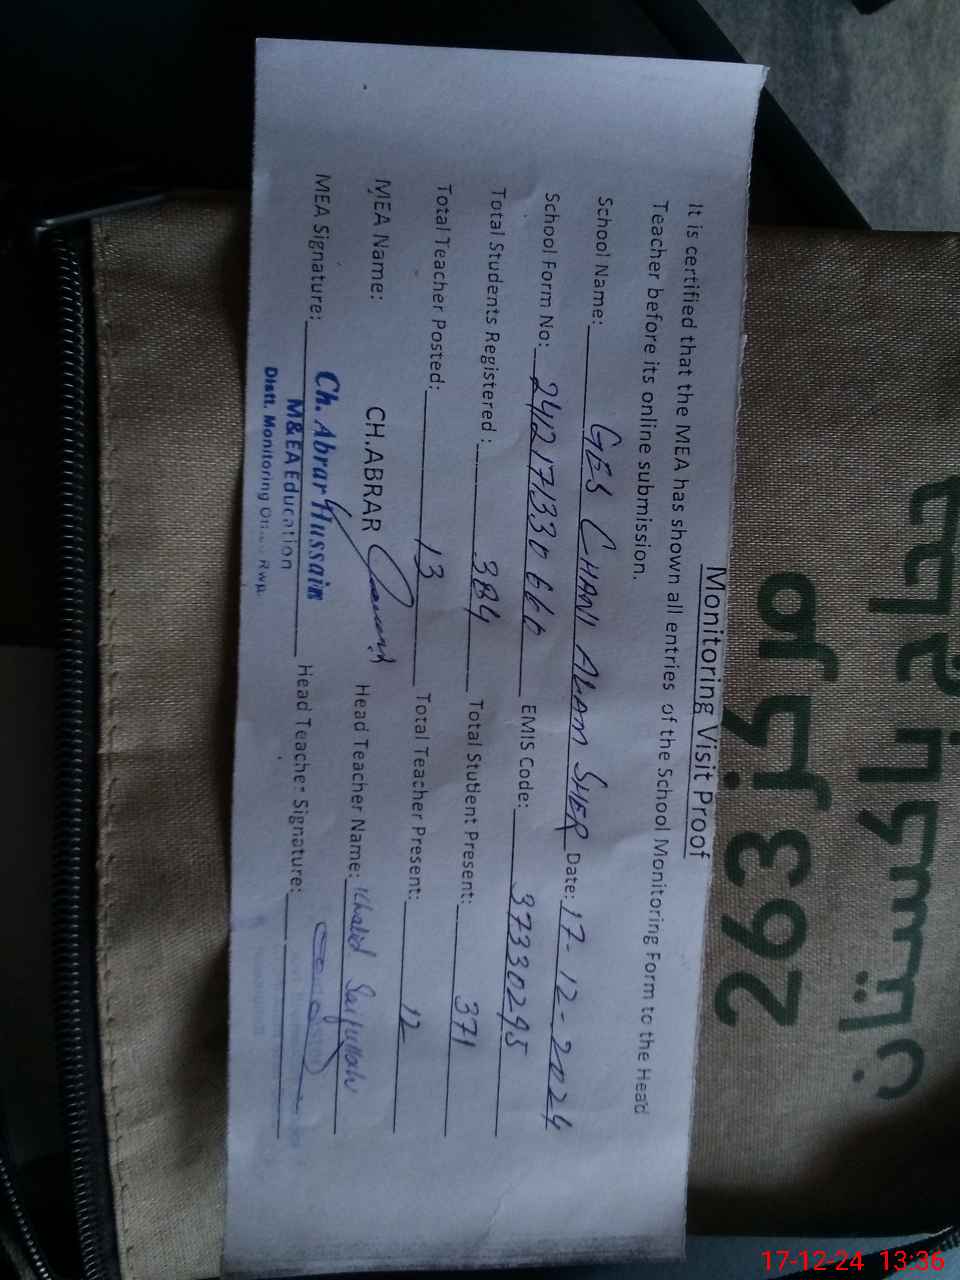 Monitoring Visit Proof
It is certified that the MEA has shown all entries of the School Monitoring Form to the Head
Teacher before its online submission.
School Name: GES CHANI ALAM SHER Date: 17-12-2024
School Form No: 24121713306 EMIS Code: 37330295
Total Students Registered: 384 Total Student Present: 371
Total Teacher Posted: 13 Total Teacher Present: 12
MEA Name: CH.ABRAR Head Teacher Name: Khalid Saifullah
MEA Signature: Head Teacher Signature:
Ch. Abrar Hussain
M&EA Education
Distt. Monitoring Rwp.
حجاج پاکستان
مرکز 263
17-12-24 13:36